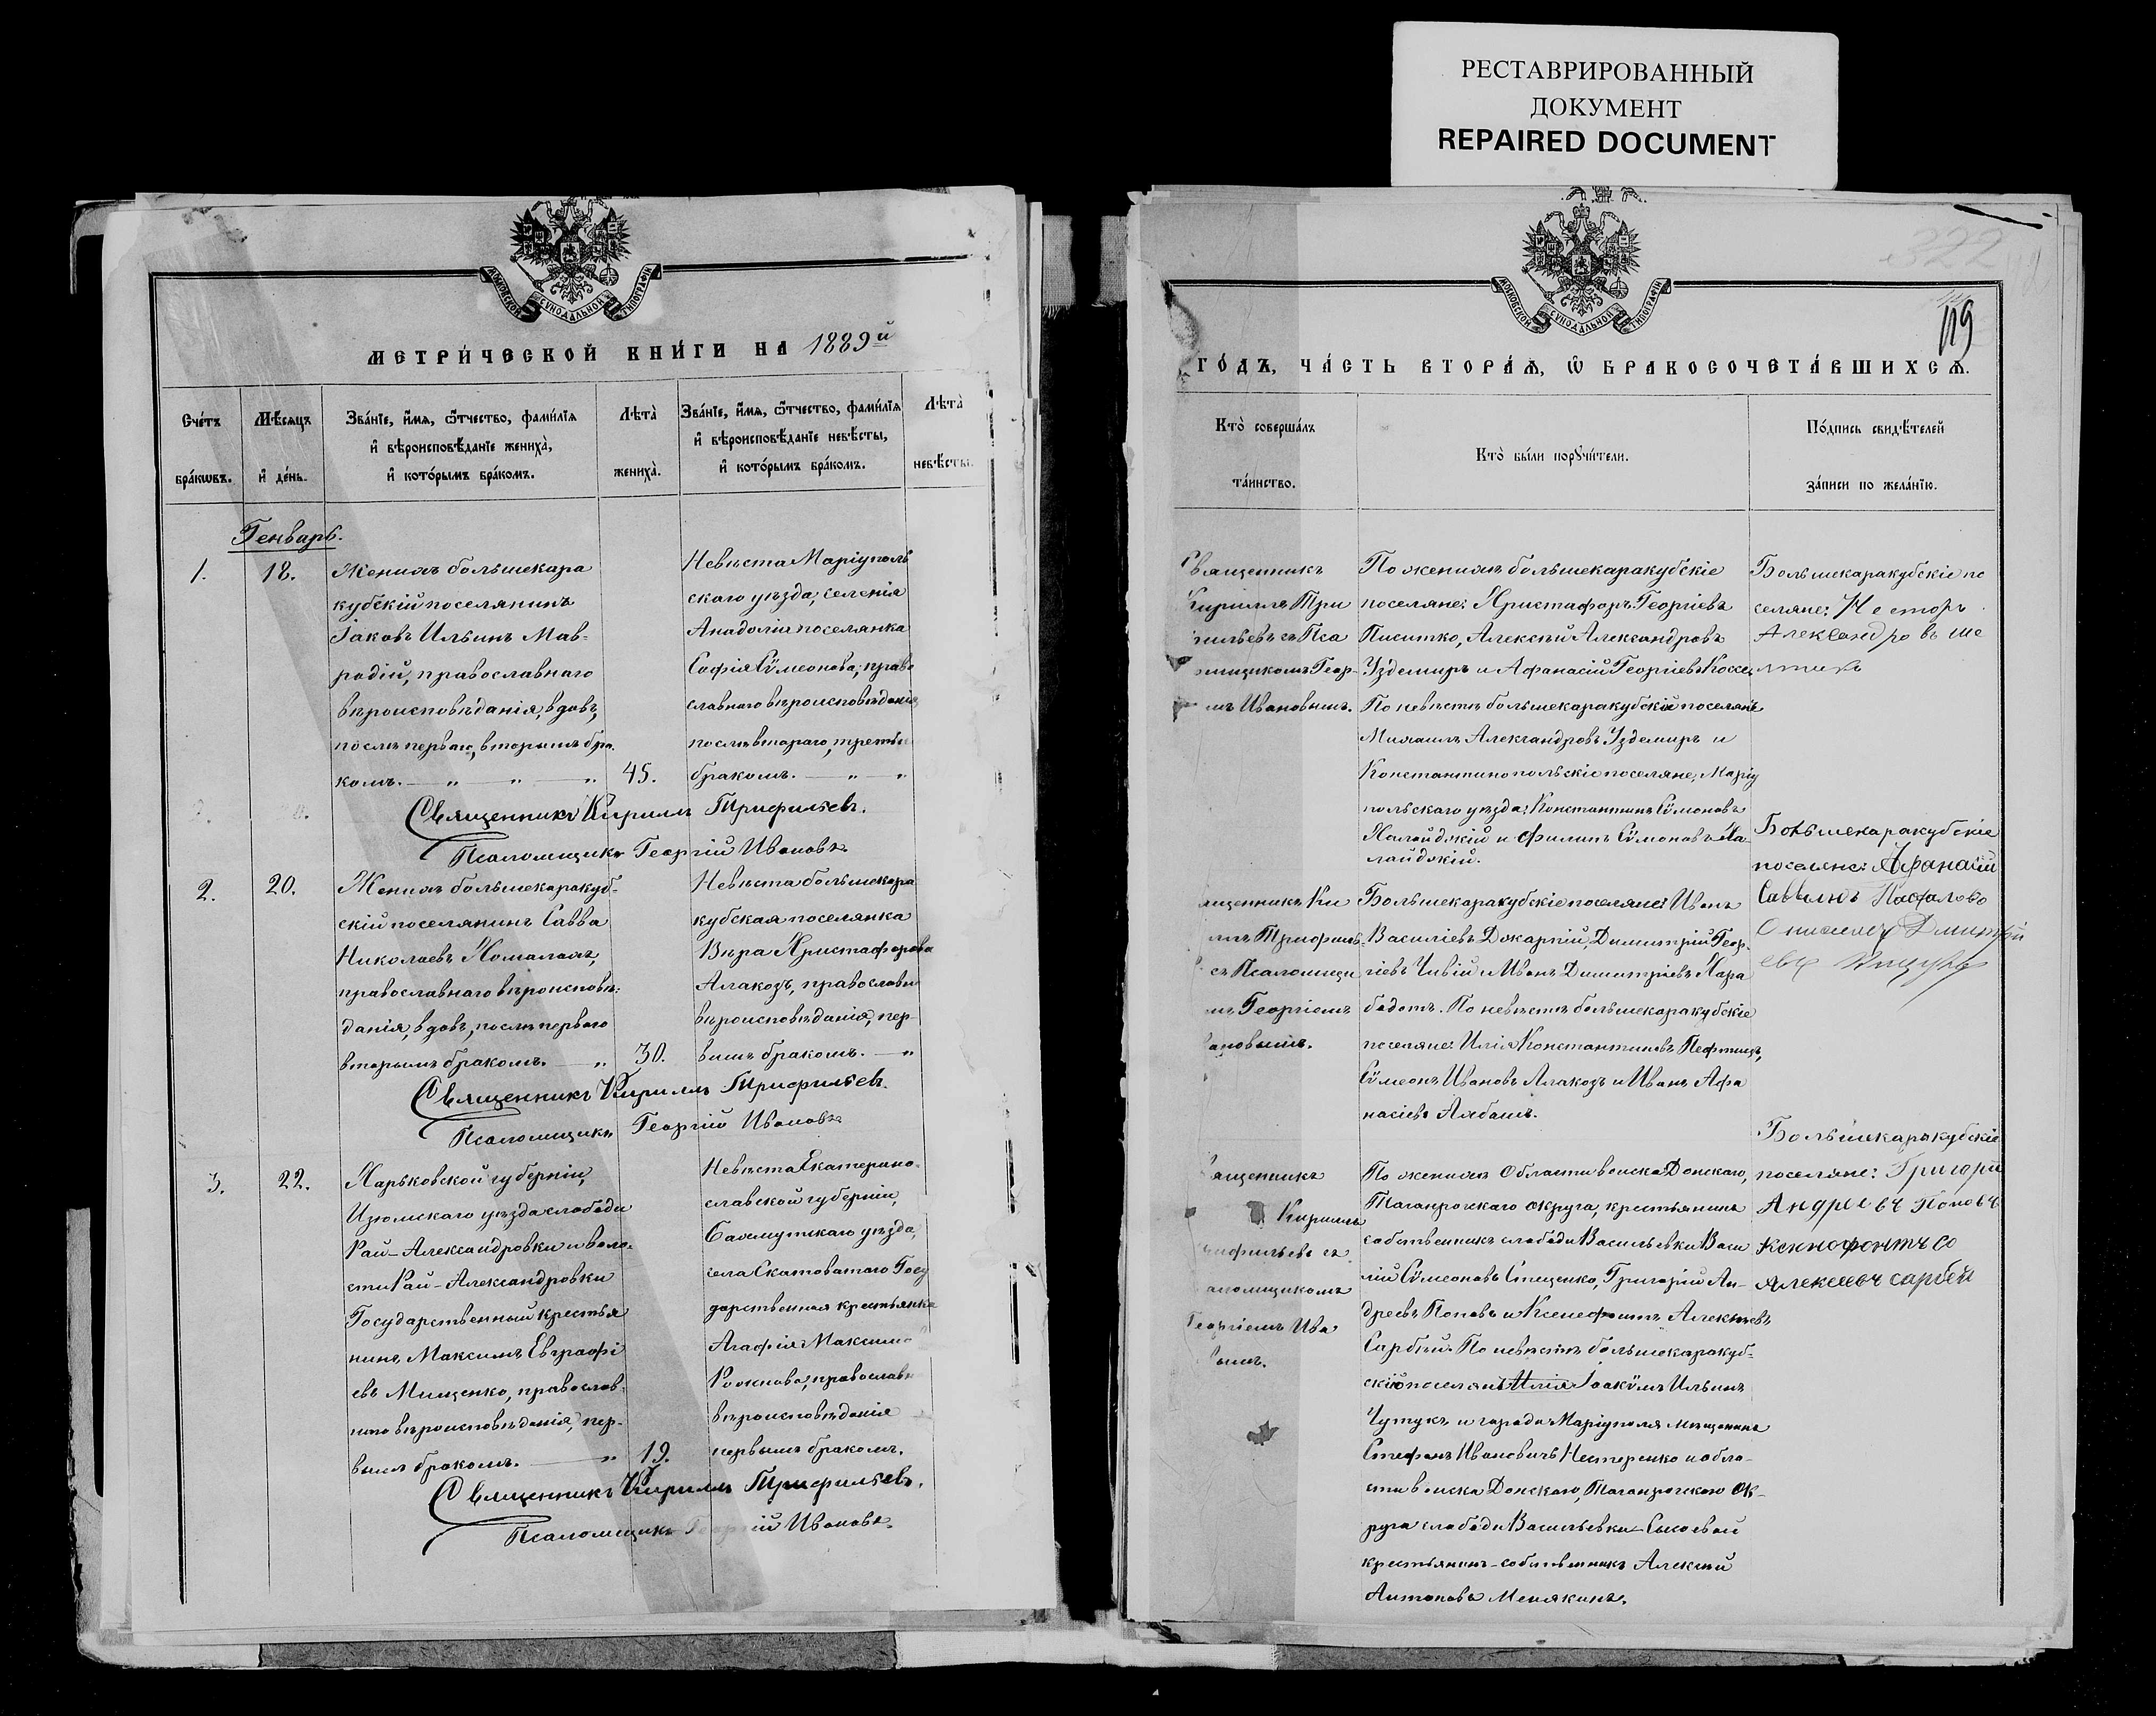 РЕСТАВРИРОВАННЫЙ
ДОКУМЕНТ
REPAIRED DOCUMENT
МОСКОВСКОЙ СУНОДАЛЬНОЙ ТИПОГРАФІИ
МЕТРИ́ЧЕСКОЙ КНИ́ГИ НА 1889й
Сче́тъ
бра́кѡвъ.
Мѣ́сяцъ
и҆ де́нь.
Зва́нїе, и҆́мѧ, ѻ҆́тчество, фамн́лїѧ
и҆ вѣроисповѣ́данїе жениха̀,
и҆ кото́рымъ бра́комъ.
Лѣта̀
жениха̀.
Зва́нїе, и҆́мѧ, ѻ҆́тчество, фамн́лїѧ
и҆ вѣроисповѣ́данїе невѣ́сты,
и҆ кото́рымъ бра́комъ.
Лѣта̀
невѣ́сты.
Генварь.
1.
18.
Женихъ большекара
кубскій поселянинъ
Іаковъ Ильинъ Мав-
родій, православнаго
вѣроисповѣданія, вдовъ,
послѣ перваго, вторымъ бра
комъ. — „ — „ — „
45.
Невѣста Маріуполь
скаго уѣзда, селенія
Анадоліи поселянка
Софія Сѵмеонова, право
славнаго вѣроисповѣданія,
послѣ втораго, третьи
бракомъ. — „ — „
Священникъ Кириллъ Трифильевъ.
Псаломщикъ Георгій Ивановъ
2.
20.
Женихъ большекаракуб-
скій поселянинъ Савва
Николаевъ Хомалахъ,
православнаго вѣроисповѣ-
данія, вдовъ, послѣ перваго
вторымъ бракомъ. — „
30.
Невѣста большекара
кубская поселянка
Вѣра Христофорова
Алакозъ, православн
вѣроисповѣданія, пер-
вымъ бракомъ. — „
Священникъ Кириллъ Трифильевъ.
Псаломщикъ Георгій Ивановъ
3.
22.
Харьковской губерніи,
Изюмскаго уѣзда слободы
Рай-Александровки и воло-
сти Рай-Александровки
Государственный крестья
нинъ Максимъ Евграфі
евъ Мищенко, православ-
наго вѣроисповѣданія, пер-
вымъ бракомъ. — „
19.
Невѣста Екатерино-
славской губерніи,
Бахмутскаго уѣзда,
села Скатоватаго Госу
дарственная крестьянка
Агафія Максимо
Рожнова, православн
вѣроисповѣданія
первымъ бракомъ.
Священникъ Кириллъ Трифильевъ.
Псаломщикъ Георгій Ивановъ.
322
119
МОСКОВСКОЙ СУНОДАЛЬНОЙ ТИПОГРАФІИ
ГО́ДЪ, ЧА́СТЬ ВТОРА́Ѧ, Ѡ҆ БРАКОСОЧЕТА́ВШИХСѦ.
Кто̀ соверша́лъ
та́инство.
Кто̀ бы́ли порꙋчи́тели.
По́дпись свидѣ́телей
за́писи по жела́нїю.
Священникъ
Кириллъ Три
фильевъ съ Пса
омщикомъ Геор-
мъ Ивановымъ.
По женихѣ большекаракубскіе
поселяне: Христофоръ Георгіевъ
Писитко, Алексѣй Александровъ
Уздемиръ и Афанасій Георгіевъ Коссе,
По невѣстѣ большекаракубскіе поселяне
Михаилъ Александровъ Уздемиръ и
Константинопольскіе поселяне, Маріу
польскаго уѣзда: Константинъ Сѵмоновъ
Халайджій и Филипъ Сѵмоновъ Ха-
лайджій.
Большекаракубскіе по
селяне: Несторъ
Александровъ Ше
лтихъ
ященникъ Ки
лъ Трифиль-
съ Псаломщи
мъ Георгіемъ
ановымъ.
Большекаракубскіе поселяне: Иванъ
Василіевъ Джарпій, Димитрій Геор-
гіевъ Чивій и Иванъ Димитріевъ Хара
бадотъ. По невѣстѣ большекаракубскіе
поселяне: Илія Константиновъ Пефтищъ,
Сѵмеонъ Ивановъ Алакозъ и Иванъ Афа
насіевъ Алябашъ.
Большекаракубскіе
поселяне: Афанасій
Саввынъ Пасфалово
Дмитрій
евъ
ященникъ
Кириллъ
ифильевъ съ
аломщикомъ
Георгіемъ Ива
вымъ.
По женихѣ Области войска Донскаго,
Таганрогскаго округа, крестьянинъ
собственникъ слободы Васильевки Васи
лій Сѵмеоновъ Стеценко, Григорій Ан-
дреевъ Поповъ и Ксенофонтъ Алексѣевъ
Сарбѣй. По невѣстѣ большекаракуб-
скій поселянъ Илія Іоакимъ Ильинъ
Чутукъ и города Маріуполя мѣщанинъ
Стефанъ Ивановичъ Нестеренко и обла-
сти войска Донскаго, Таганрогскаго ок-
руга слободы Васильевки-Сысоевой
крестьянинъ-собственникъ Алексѣй
Антоновъ Менякинъ.
Большекаракубскіе
поселяне: Григорій
Андреевъ Поповъ
Ксенофонтъ Со
Алексеевъ сарбей